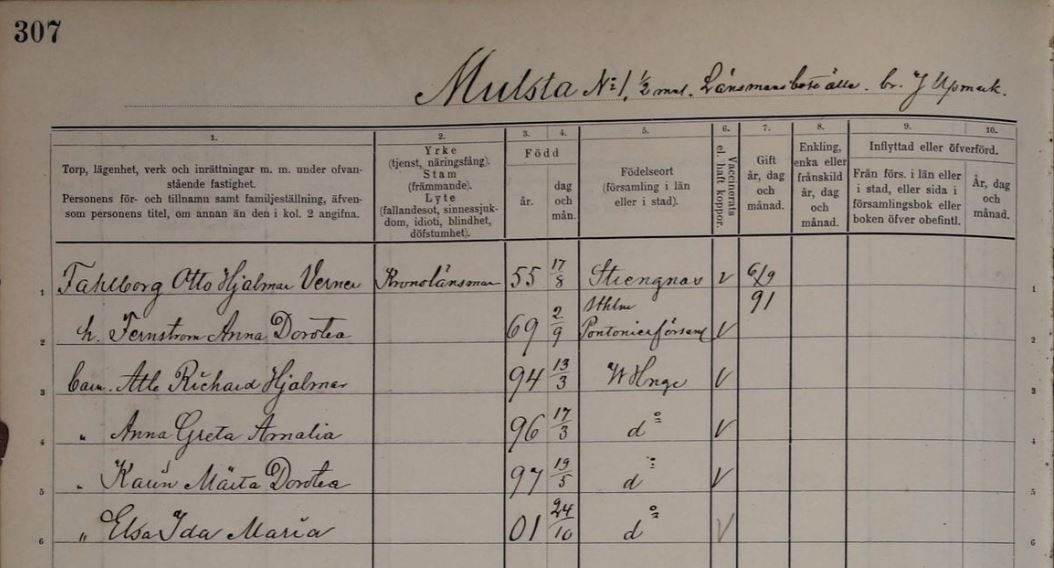 307
Mulsta No 1, 1/2 mtl. Länsmansboställe. br. J Upmark.
1. 2. 3. 4. 5. 6. 7. 8. 9. 10.
Torp, lägenhet, verk och inrättningar m. m. under ofvan-
stående fastighet.
Personens för- och tillnamn samt familjeställning, äfven-
som personens titel, om annan än den i kol. 2 angifna.
Yrke
(tjenst, näringsfång).
Stam
(främmande).
Lyte
(fallandesot, sinnessjuk-
dom, idioti, blindhet,
döfstumhet).
Född
år.
dag
och
mån.
Födelseort
(församling i län
eller i stad).
Vaccinerats
el. haft koppor.
Gift
år, dag
och
månad.
Enkling,
enka eller
frånskild
år, dag
och
månad.
Inflyttad eller öfverförd.
Från förs. i län eller
i stad, eller sida i
församlingsbok eller
boken öfver obefintl.
År, dag
och
månad.
1 Fahlborg Otto Hjalmar Verner Kronolänsman 55 17/8 Strengnäs V 6/9 91 1
2 h. Fernström Anna Dorotea 69 2/9 Sthlm Pontonierförsaml V 2
3 barn. Atle Richard Hjalmar 94 13/3 W Hnge V 3
4 " Anna Greta Amalia 96 17/3 do V 4
5 " Karin Märta Dorotea 97 19/5 do V 5
6 " Elsa Ida Maria 01 24/10 do V 6